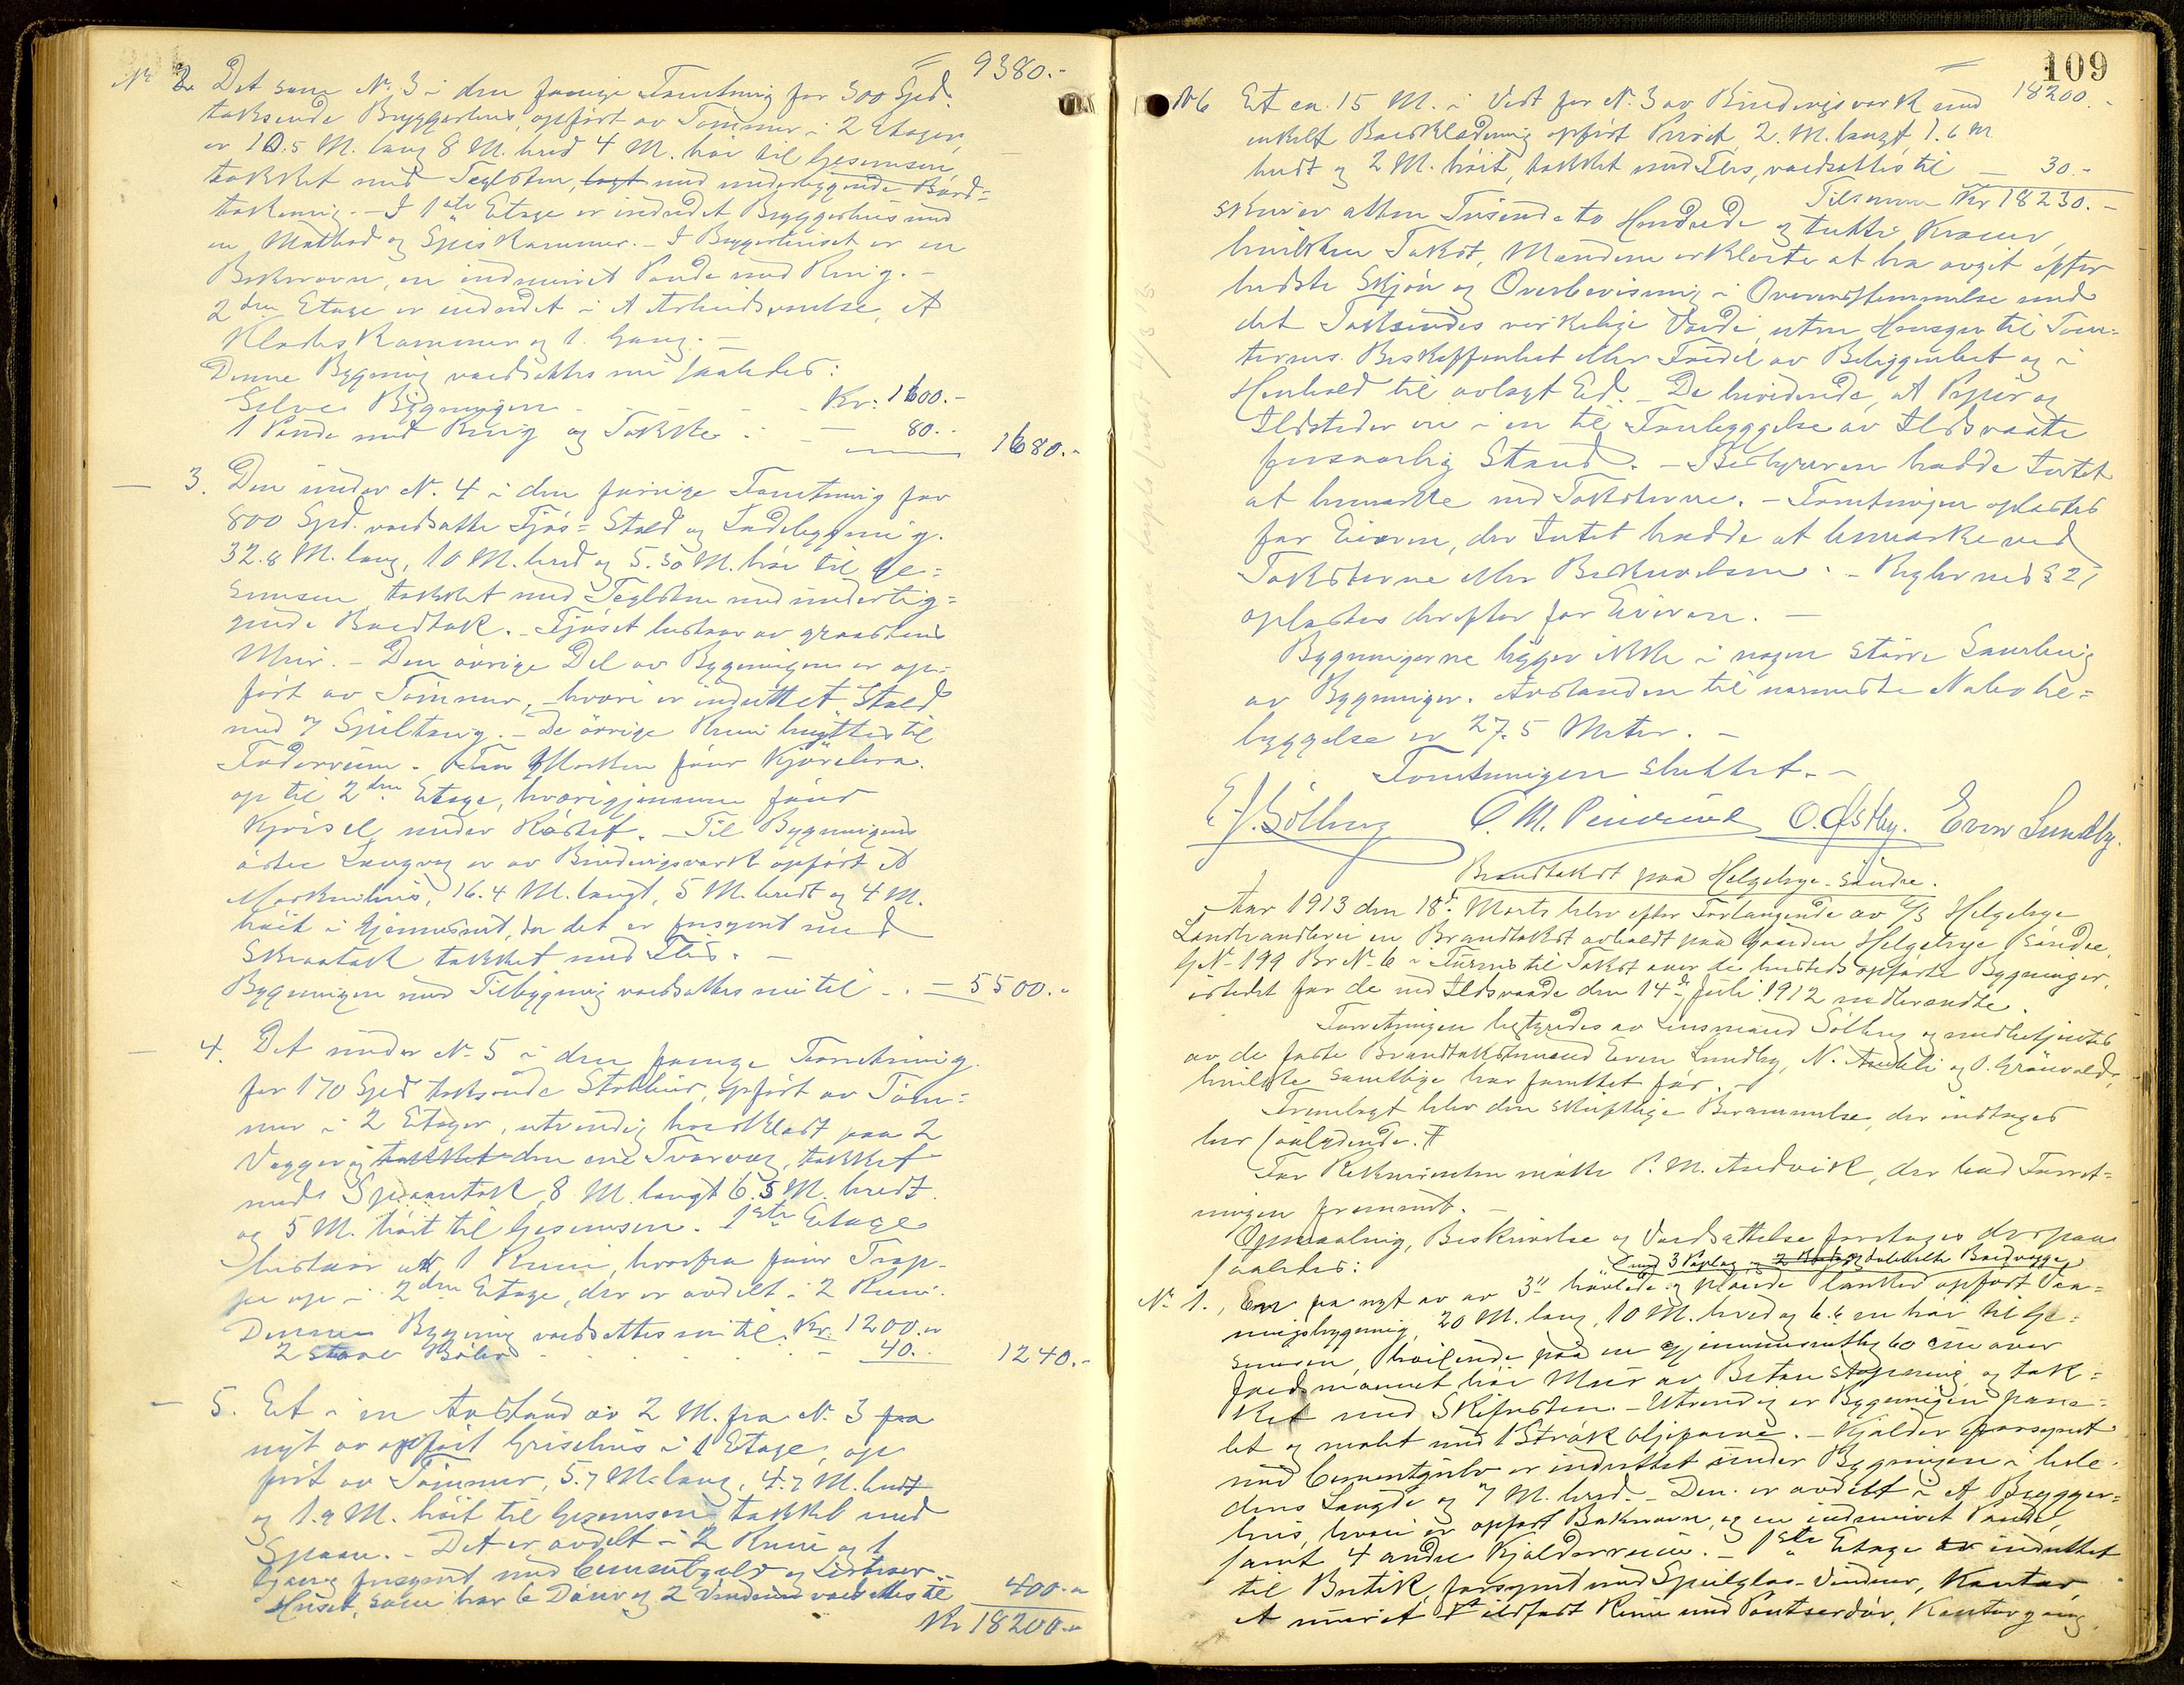 9380.-
No 2. Det som No. 3 i den forrige Forretning for 300 Spd.
takserede Bryggerhus, opført av Tømmer i 2 Etager,
er 10.5 M. lang 8 M. bred 4 M. høi til Gesemsen,
tækket med Teglsten, lagt med underliggende Bord=
tækning. - I 1ste Etage er indredet Bryggerhus med
en Matbod og Spiskammer. - I Bryggerhuset er en
Bakerovn, en indmuret Pande med Ring. -
2den Etage er indredet i et Arbeidsværelse, et
Klædeskammer og 1 Gang. -
Denne Bygning værdsættes nu saaledes:
Selve Bygningen - - - Kr. 1600.-
1 Pande med Ring og Takke - - 80.- 1680.-
- 3. Den under No. 4 i den forrige Forretning for
800 Spd. værdsatte Fjøs= Stald og Ladebygning.
32.8 M. lang, 10 M. bred og 5.50 M. høi til Ge=
semsen, tækket med Teglsten med underlig=
gende Bordtak. - Fjøset bestaar av graastens
Mur. - Den øvrige Del av Bygningen er op=
ført av Tømmer, hvori er indrettet Stald
med 7 Spiltaug. - De øvrige Rum benyttes til
Foderrum. - Fra Marken fører Kjørebro
op til 2den Etage, hvorigjennem fører
Kjørsel under Røstet. - Til Bygningens
østre Langvæg er av Bindingsværk opført et
Maskinhus, 16.4 M. langt, 5 M. bredt og 4 M.
høit i Gjennemsnit, da det er forsynt med
Skraatak tækket med Flis. -
Bygningen med Tilbygning værdsættes nu til - . - 5500.-
- 4. Det under No. 5 i den forrige Forretning
for 170 Spd takserede Stabbur, opført av Tøm=
mer i 2 Etager, utvendig bordklædt paa 2
Vægger og tækket den ene Tværvæg, tækket
med Spaantak, 8 M. langt 6.5 M. bredt
og 5 M. høit til Gesemsen. 1ste Etage
bestaar av 1 Rum, hvorfra fører Trap=
pe op i 2den Etage, der er avdelt i 2 Rum.
Denne Bygning værdsættes nu til Kr. 1200.-
2 store Bøler - 40.- 1240.-
- 5. Et i en Avstand av 2 M. fra No. 3 fra
nyt av opført Grisehus i 1 Etage, op
ført av Tømmer, 5.7 M. lang, 4.7 M. bredt
og 1.9 M. høit til Gesemsen tækket med
Spaan. - Det er avdelt i 2 Rum og 1
Gang forsynt med Cementgulv og
Huset, som har 6 Dører og 2 Vinduer værdsættes til 400.-
Kr 18200.-
109
18200.-
No 6 Et ca. 15 M. i Vest for No. 3 av Bindingsværk med
enkelt Bordklædning opført Privet, 2. M. langt, 1.6 M
bredt og 2 M. høit, tækket med Flis, værdsættes til - 30.-
Tilsammen Kr 18230.-
skriver atten Tusende to Hundrede og tretti Kroner,
hvilken Takst, Mændene erklærte at ha avgit efter
bedste Skjøn og Overbevisning i Overensstemmelse med
det Takseredes virkelige Værdi, uten Hensyn til Tom=
ternes Beskaffenhet eller Fordel av Beliggenhet og i
Henhold til avlagt Ed. - De bevidnede, at Piper og
Ildsteder er i en til Forebyggelse av Ildsvaade
forsvarlig Stand. - Bestyreren hadde Intet
at bemærke ved Taksterne. - Forretningen oplæstes
for Eieren, der Intet hadde at bemærke ved
Taksterne eller Beskrivelsen. - Reglernes § 27
oplæstes derefter for Eieren. -
Bygningerne ligger ikke i nogen større Samling
av Bygninger. Avstanden til nærmeste Nabobe=
byggelse er 27.5 Meter. -
Forretningen sluttet. -
E. J. Sölberg O. Østby. Even Lundby.
Brandtakst paa Helgebye søndre.
Aar 1913 den 18de Marts blev efter Forlangende av A/S Helgebye
Landhandleri en Brandtakst avholdt paa Gaarden Helgebye søndre,
G No 199 Br No 6 i Furnes til Takst over de hersteds opførte Bygninger,
istedet for de ved Ildsvaade den 14de Juli 1912 nedbrændte.
Forretningen bestyredes av Lensmand Sölberg og medbetjentes
av de faste Brandtakstmænd Even Lundby, N. og O. Grönvold,
hvilke samtlige har forrettet før.
Fremlagt blev den skriftlige Berammelse, der indtages
her saalydende. #
For Rekvirenten møtte P. M. Andvik, der bad Forret=
ningen fremmet. -
Opmaaling, Beskrivelse og Værdsættelse foretoges derpaa
saaledes:
med 3 Paplag og dobbelte Bordvægge
No 1. En fra nyt av av 3" høvlede og pløiede Planker opført Vaa=
ningsbygning, 20 M. lang, 10 M. bred og 6.6 m høi til Ge=
semsen, hvilende paa en gjennemsnitlig 60 cm over
Jordsmonnet høi Mur av Beton støpning og tæk=
ket med Skifersten. - Utvendig er Bygningen pane=
let og malet med 1 Strøk oljefarve. - Kjelder forsynt
med Cementgulv er indrettet under Bygningen i hele
dens Længde og 7 M. bred. - Den er avdelt i et Brygger=
hus, hvori er opført Bakerovn, og en indmuret Pande,
samt 4 andre Kjelderrum. - 1ste Etage er indrettet
til Butik, forsynet med Speilglas-Vinduer, Kontor,
et muret ildfast Rum med Pantserdør, Kontorgang